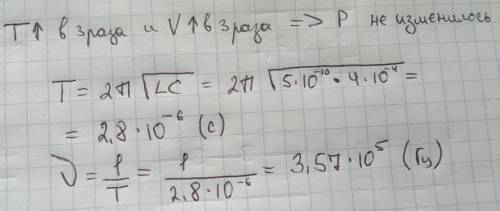 T↑ в 3 раза и V↑ в 3 раза => P не изменилось
T = 2π√LC = 2π√5·10⁻¹⁰·4·10⁻⁴ =
= 2,8·10⁻⁶ (с)
ν = 1/T = 1/2,8·10⁻⁶ = 3,57·10⁵ (Гц)